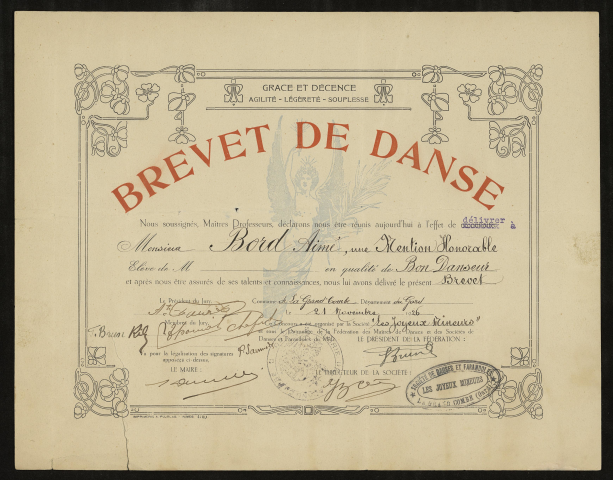 GRACE ET DÉCENCE
AGILITÉ - LÉGÈRETÉ - SOUPLESSE
BREVET DE DANSE
Nous soussignés, Maîtres Professeurs, déclarons nous être réunis aujourd'hui à l'effet de délivrer à
Monsieur Bord Aimé, une Mention Honorable
Elève de M en qualité de Bon Danseur
et après nous être assurés de ses talents et connaissances, nous lui avons délivré le présent Brevet
Le Président du Jury, Commune de La Grand'Combe Département du Gard
21 Novembre 26
Membre du Jury, organisé par la Société "Les Joyeux Mineurs"
et sous le Patronage de la Fédération des Maîtres de Danse et des Sociétés de
Danses et Farandoles du Midi. LE PRÉSIDENT DE LA FÉDÉRATION :
Vu, pour la législation des signatures
apposées ci-dessus.
LE MAIRE : LE DIRECTEUR DE LA SOCIÉTÉ :
SOCIÉTÉ DE DANSES ET FARANDOLES
LES JOYEUX MINEURS